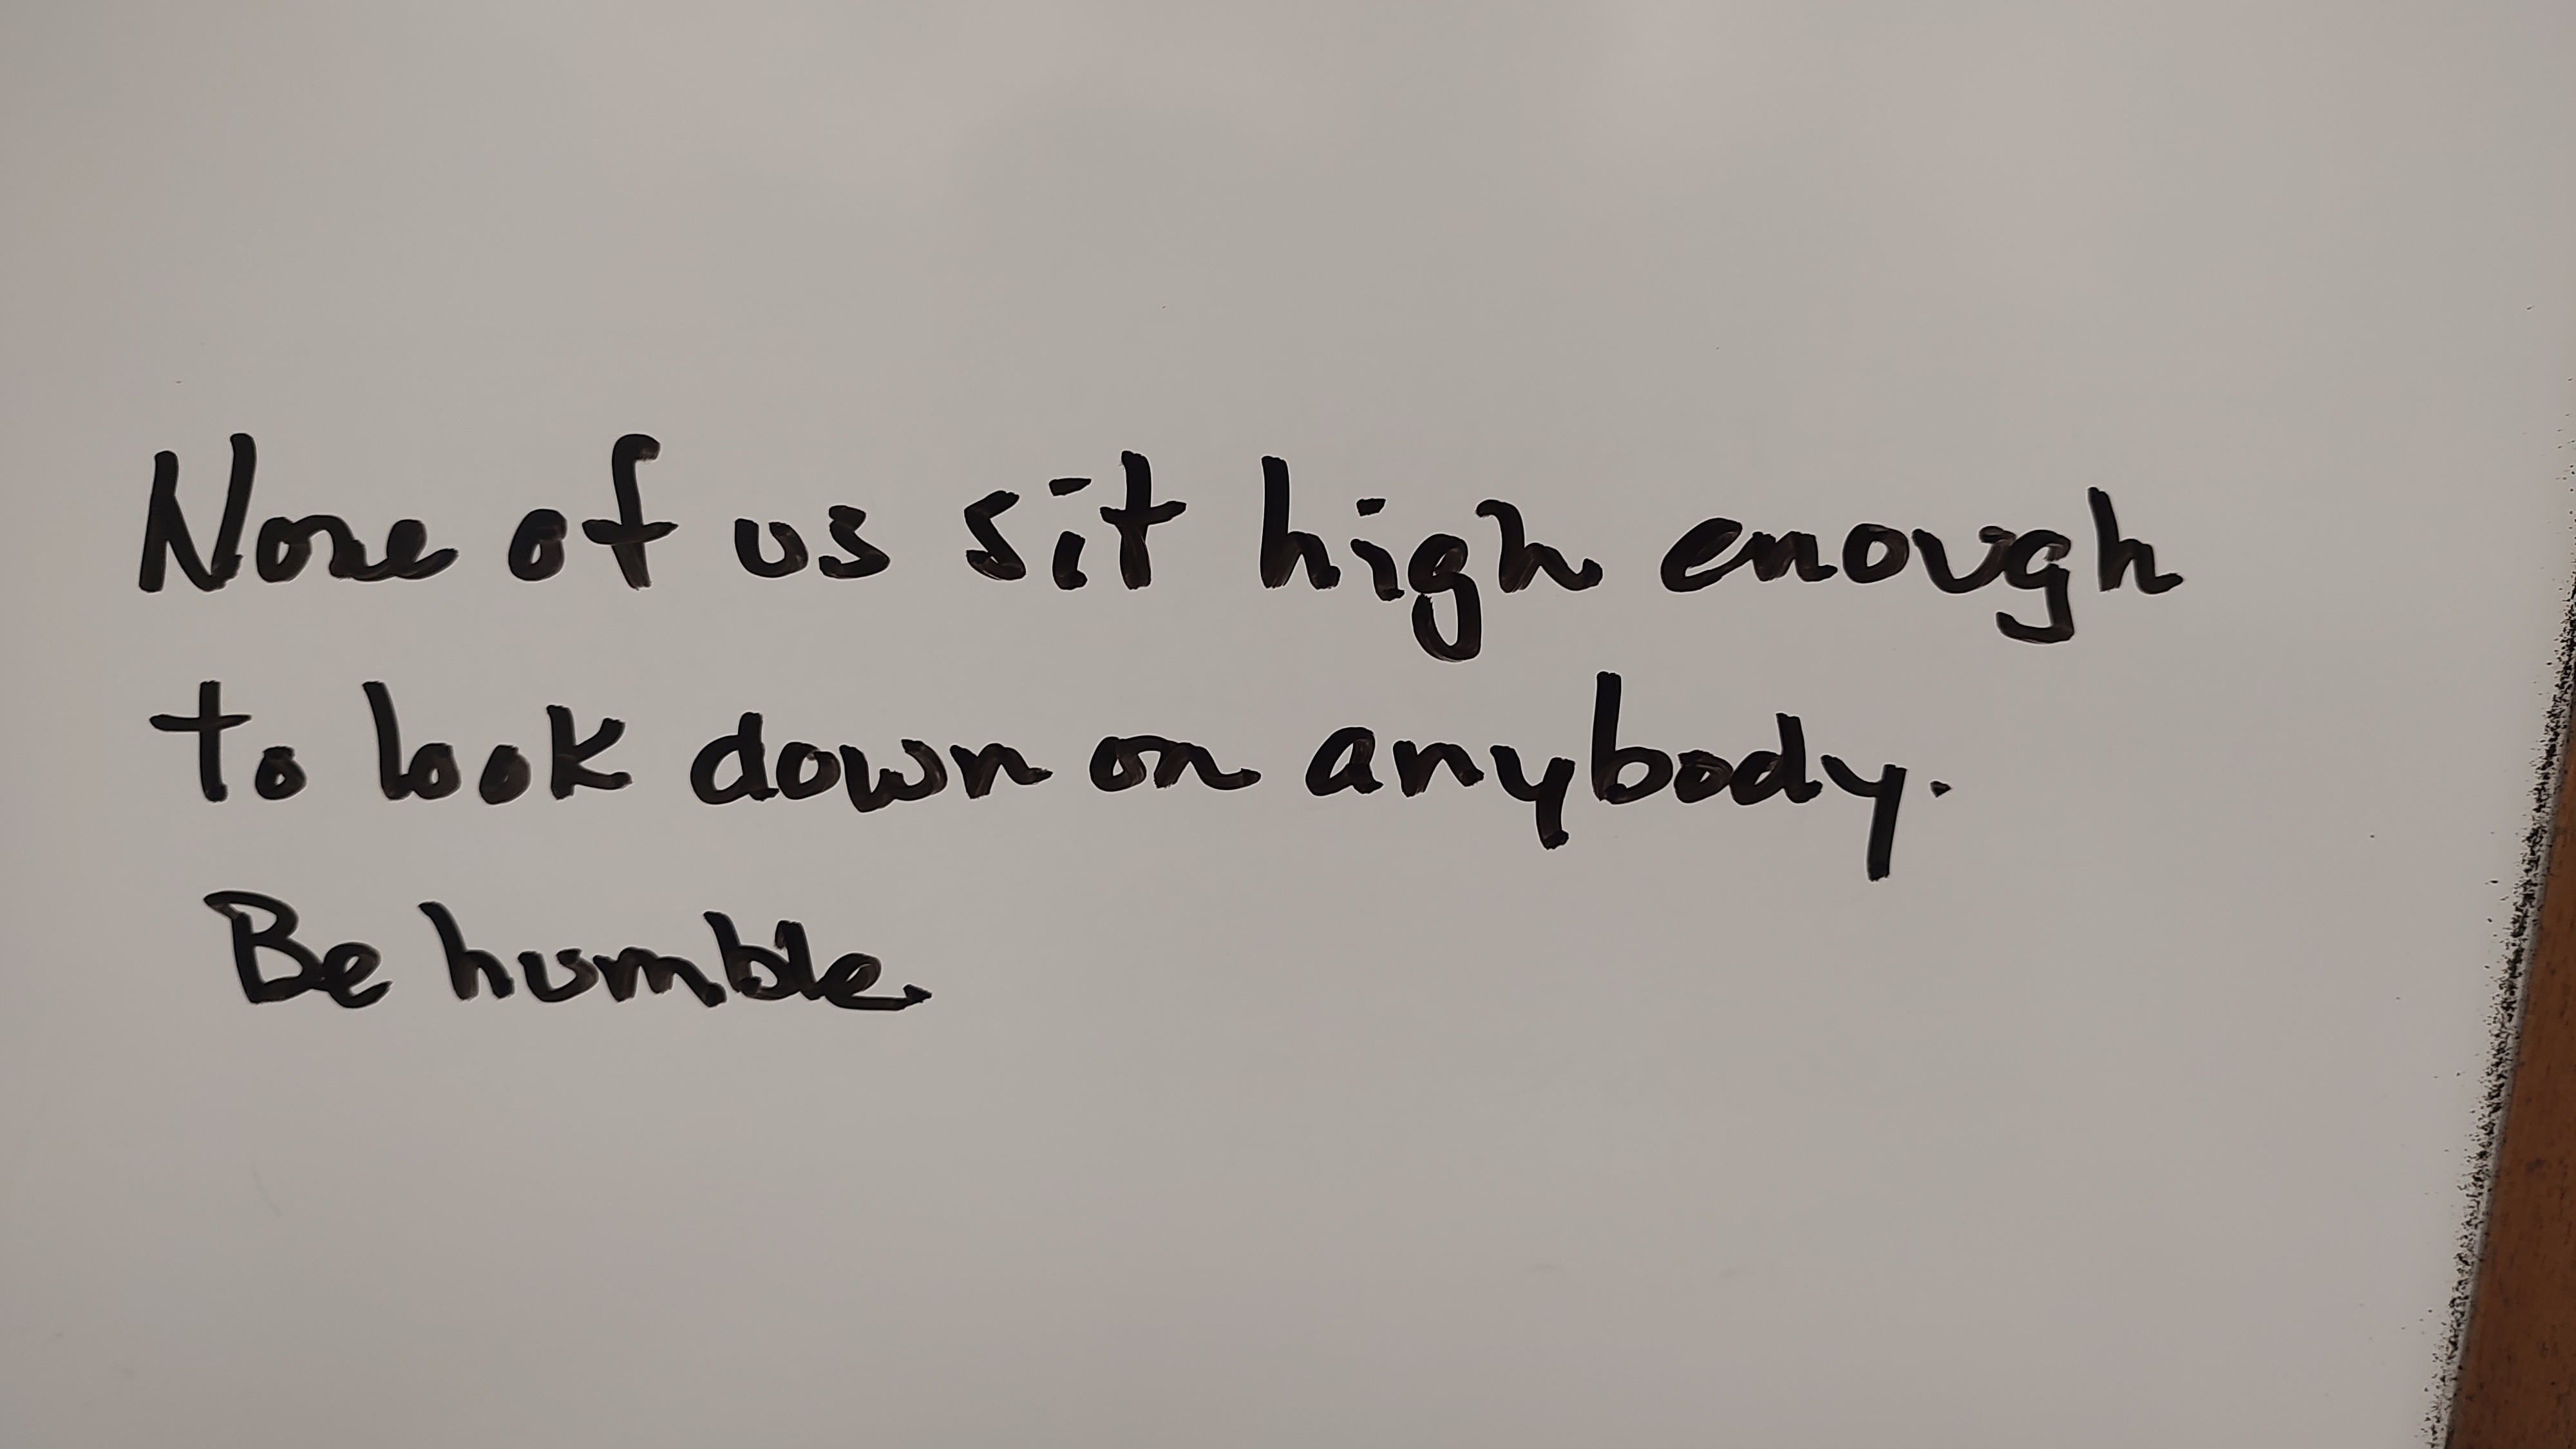 None of us sit high enough
to look down on anybody.
Be humble.